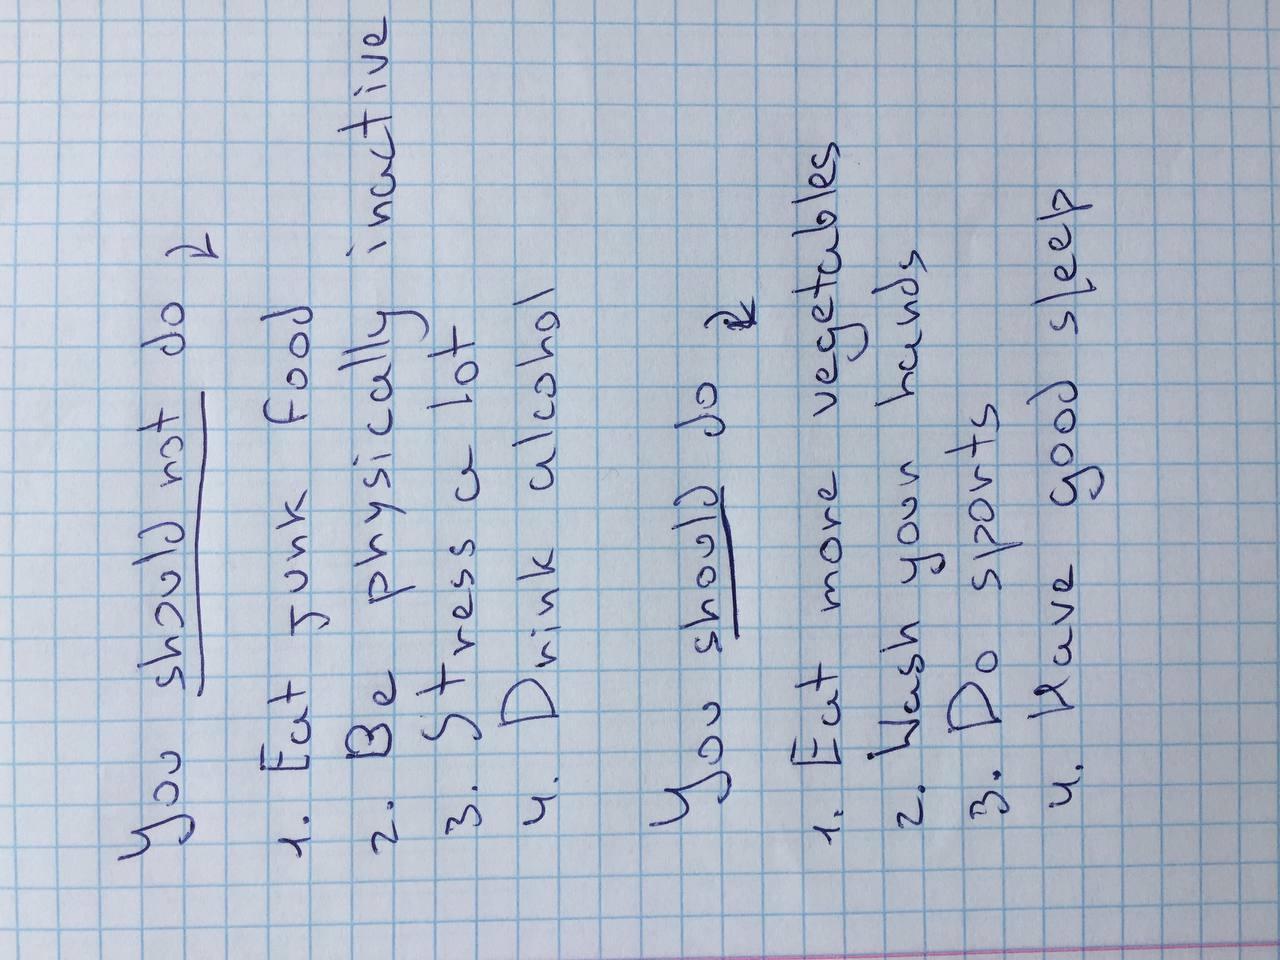 You should not do ↓
1. Eat junk food
2. Be physically inactive
3. Stress a lot
4. Drink alcohol
You should do ↓
1. Eat more vegetables
2. Wash your hands
3. Do sports
4. Have good sleep